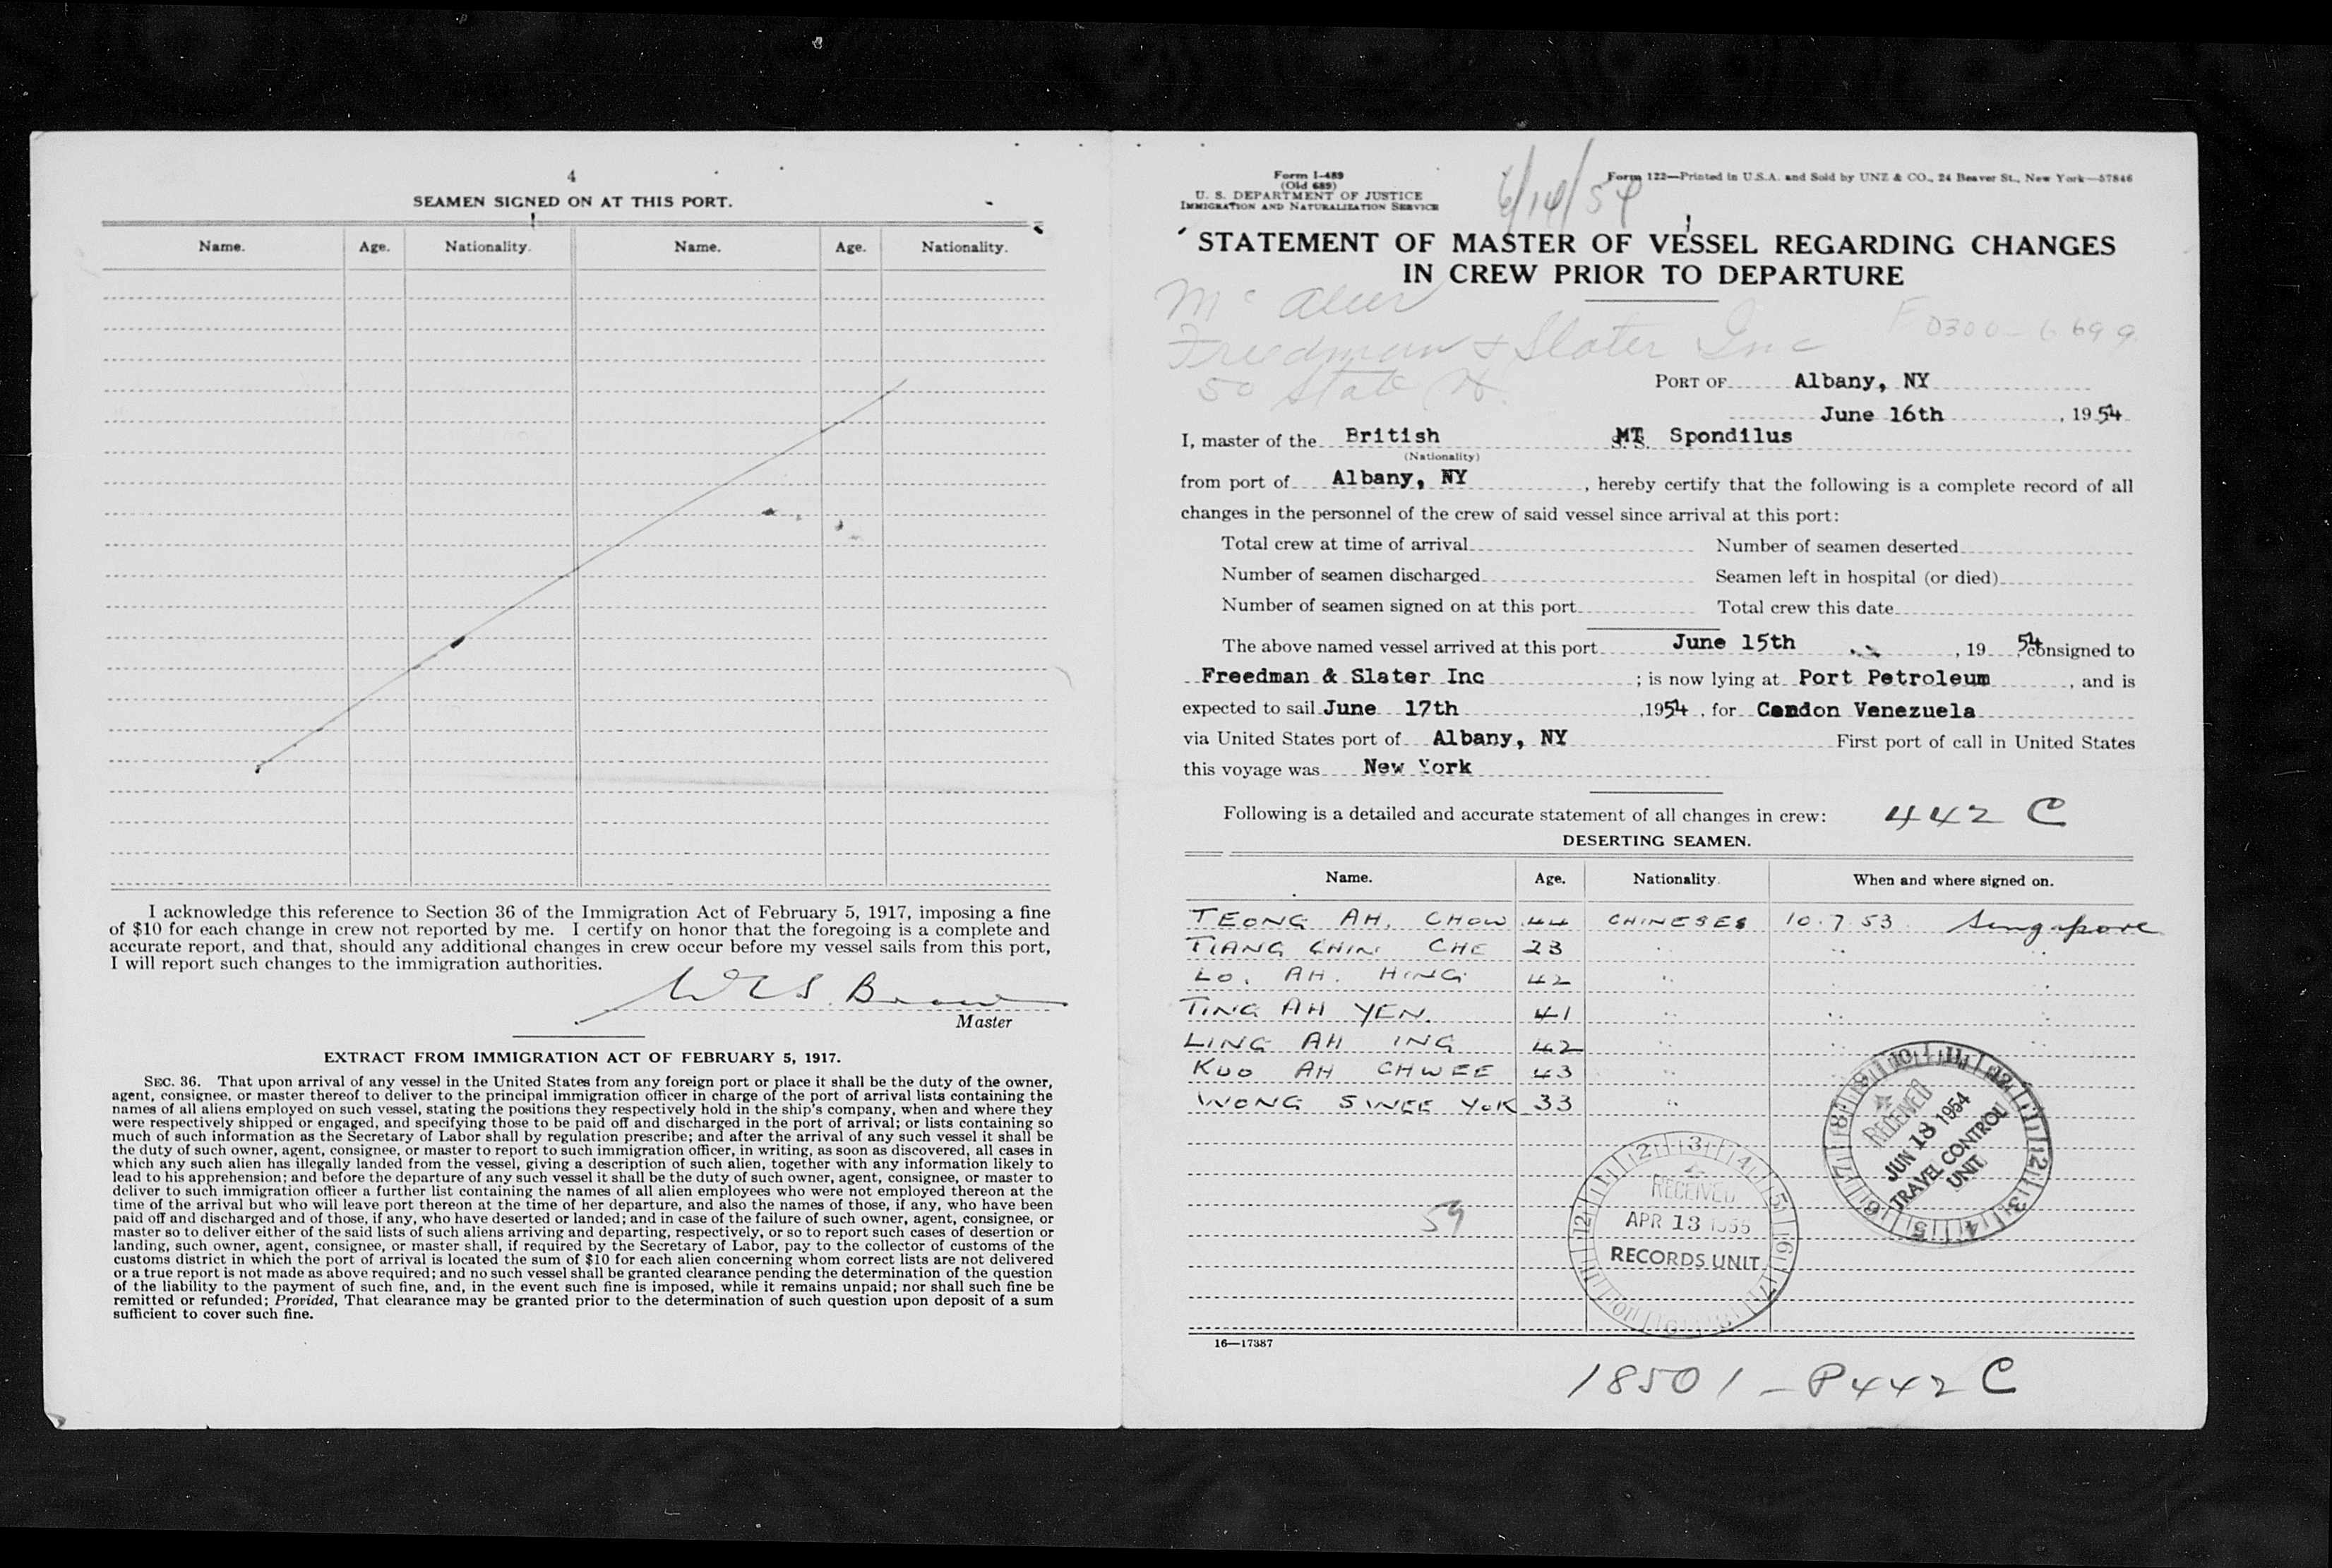 4
SEAMEN SIGNED ON AT THIS PORT.
Name. Age. Nationality. Name. Age. Nationality.
I acknowledge this reference to Section 36 of the Immigration Act of February 5, 1917, imposing a fine
of $10 for each change in crew not reported by me. I certify on honor that the foregoing is a complete and
accurate report, and that, should any additional changes in crew occur before my vessel sails from this port,
I will report such changes to the immigration authorities.
Master
EXTRACT FROM IMMIGRATION ACT OF FEBRUARY 5, 1917.
SEC. 36. That upon arrival of any vessel in the United States from any foreign port or place it shall be the duty of the owner,
agent, consignee, or master thereof to deliver to the principal immigration officer in charge of the port of arrival lists containing the
names of all aliens employed on such vessel, stating the positions they respectively hold in the ship's company, when and where they
were respectively shipped or engaged, and specifying those to be paid off and discharged in the port of arrival; or lists containing so
much of such information as the Secretary of Labor shall by regulation prescribe; and after the arrival of any such vessel it shall be
the duty of such owner, agent, consignee, or master to report to such immigration officer, in writing, as soon as discovered, all cases in
which any such alien has illegally landed from the vessel, giving a description of such alien, together with any information likely to
lead to his apprehension; and before the departure of any such vessel it shall be the duty of such owner, agent, consignee, or master to
deliver to such immigration officer a further list containing the names of all alien employees who were not employed thereon at the
time of the arrival but who will leave port thereon at the time of her departure, and also the names of those, if any, who have been
paid off and discharged and of those, if any, who have deserted or landed; and in case of the failure of such owner, agent, consignee, or
master so to deliver either of the said lists of such aliens arriving and departing, respectively, or so to report such cases of desertion or
landing, such owner, agent, consignee, or master shall, if required by the Secretary of Labor, pay to the collector of customs of the
customs district in which the port of arrival is located the sum of $10 for each alien concerning whom correct lists are not delivered
or a true report is not made as above required; and no such vessel shall be granted clearance pending the determination of the question
of the liability to the payment of such fine, and, in the event such fine is imposed, while it remains unpaid; nor shall such fine be
remitted or refunded; Provided, That clearance may be granted prior to the determination of such question upon deposit of a sum
sufficient to cover such fine.
Form I-489
(Old 689)
U. S. DEPARTMENT OF JUSTICE
IMMIGRATION AND NATURALIZATION SERVICE
Form 122—Printed in U.S.A. and Sold by UNZ & CO., 24 Beaver St., New York—57846
6/14/54
STATEMENT OF MASTER OF VESSEL REGARDING CHANGES
IN CREW PRIOR TO DEPARTURE
Freedman & Slater Inc
50 State St.
F 0300-6699
PORT OF Albany, NY
June 16th, 1954
I, master of the British MT Spondilus
(Nationality)
from port of Albany, NY, hereby certify that the following is a complete record of all
changes in the personnel of the crew of said vessel since arrival at this port:
Total crew at time of arrival Number of seamen deserted
Number of seamen discharged Seamen left in hospital (or died)
Number of seamen signed on at this port Total crew this date
The above named vessel arrived at this port June 15th, 19 54 consigned to
Freedman & Slater Inc; is now lying at Port Petroleum, and is
expected to sail June 17th, 1954, for Candon Venezuela
via United States port of Albany, NY First port of call in United States
this voyage was New York
Following is a detailed and accurate statement of all changes in crew: 442 C
DESERTING SEAMEN.
Name. Age. Nationality. When and where signed on.
TEONG AH. CHOW 44 CHINESES 10.7.53 Singapore
TIANG CHIN CHE 23
LO. AH. HING 42
TING AH YEN. 41
LING AH ING 42
KUO AH CHWEE 43
WONG SWEE YOK 33
RECEIVED
JUN 18 1954
TRAVEL CONTROL
UNIT
59
RECEIVED
APR 13 1955
RECORDS UNIT
16—17387
18501-P442 C